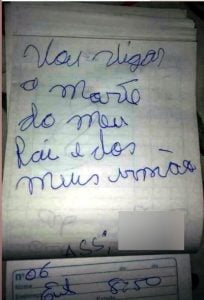 Vou Vigar
a Morte
do meu
Pai e dos
meus irmão
ASS;
nº 06
8250